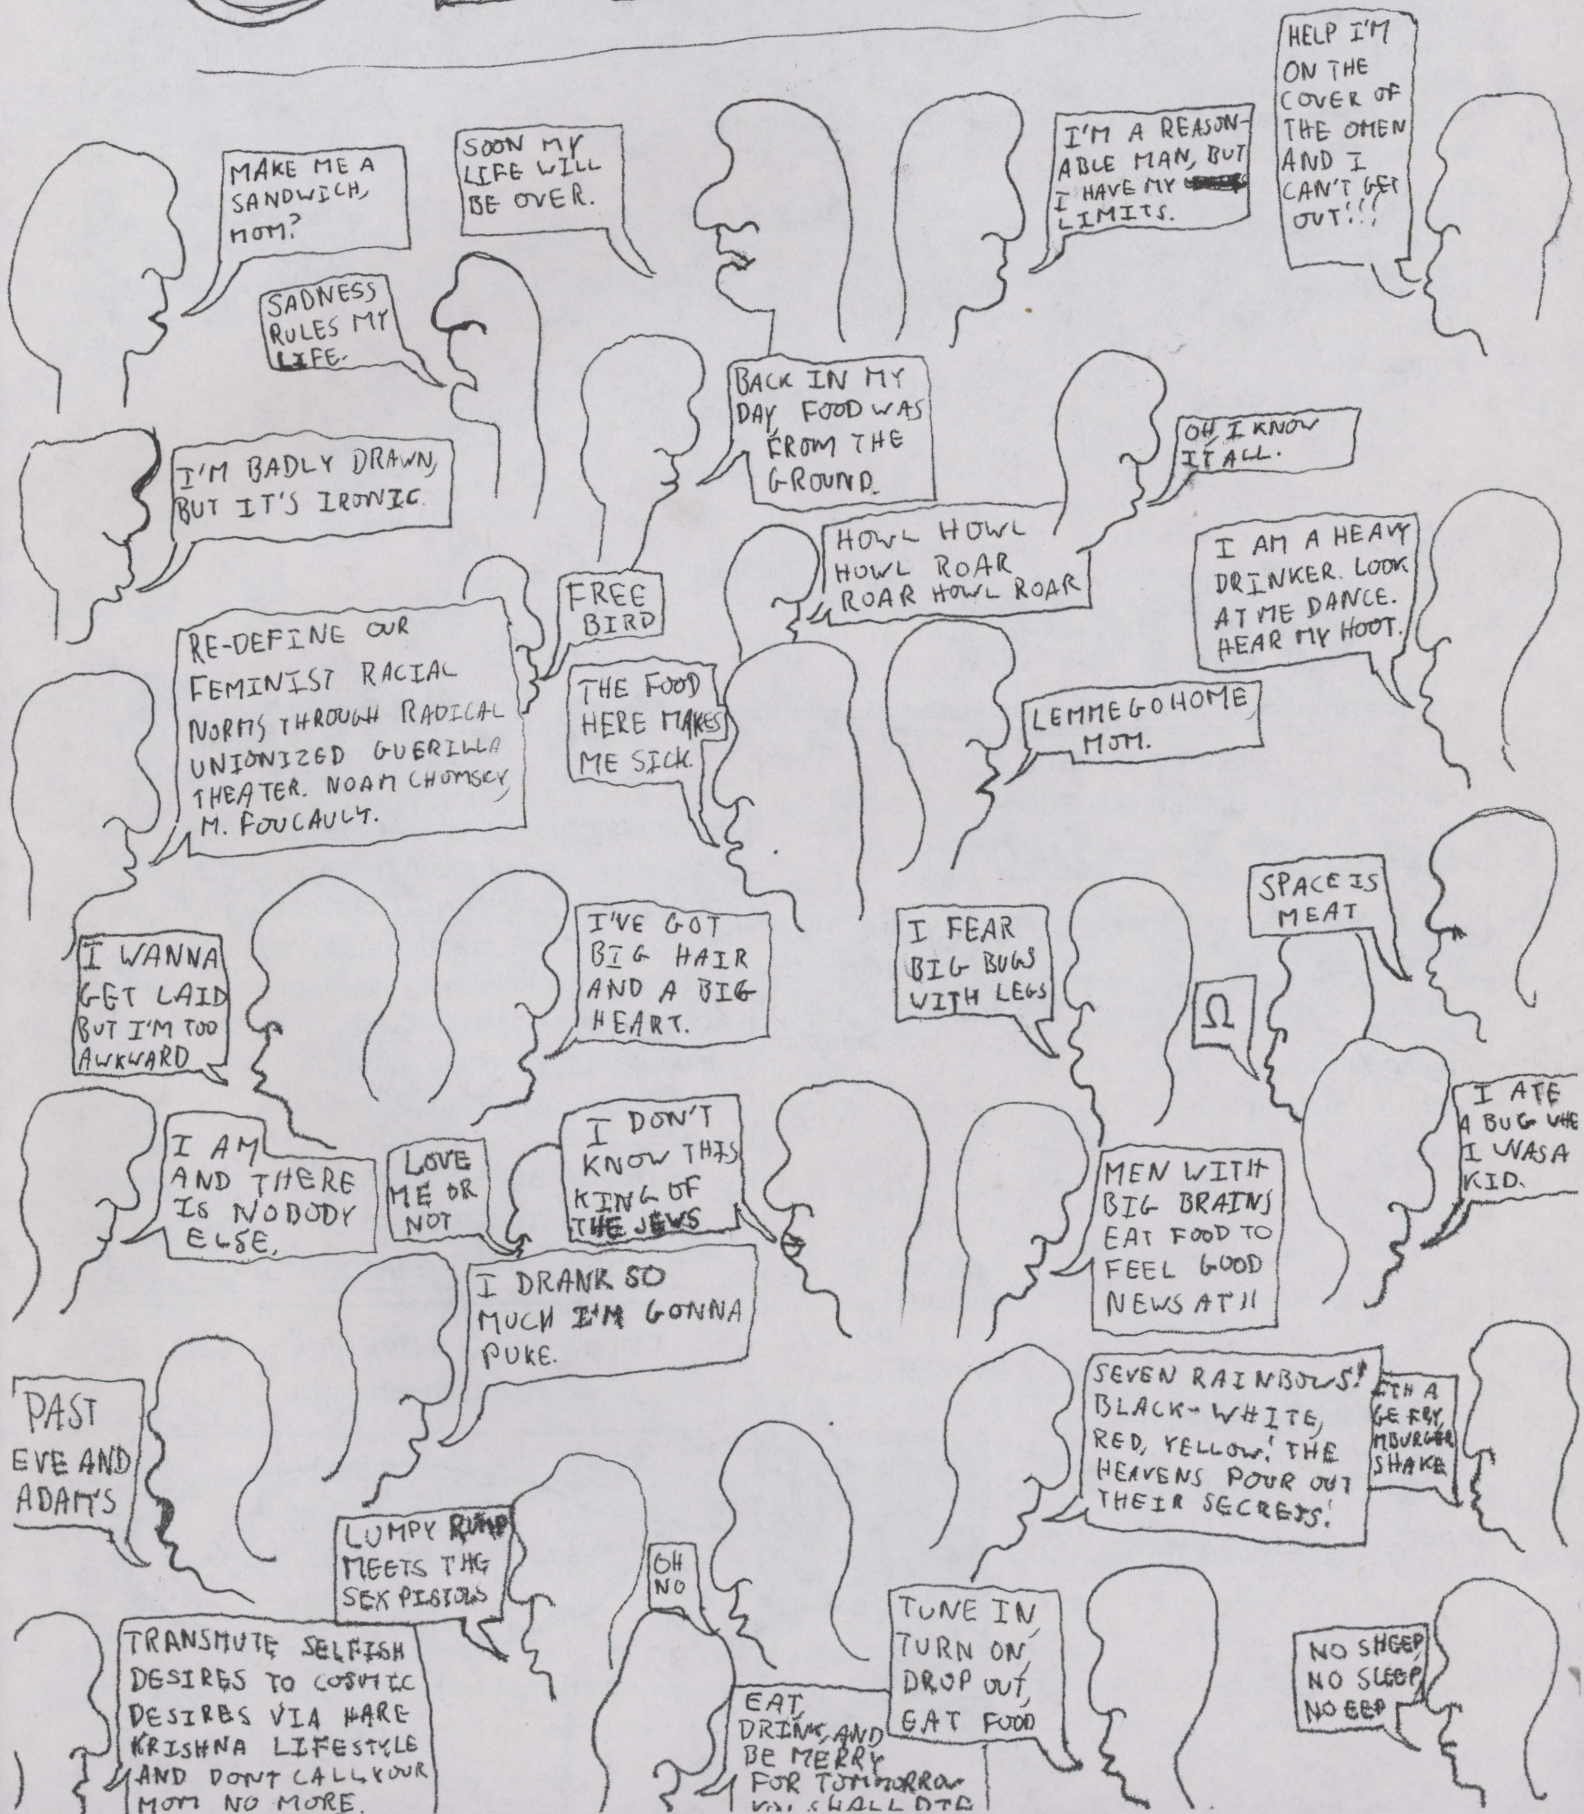 MAKE ME A
SANDWICH,
MOM?
SOON MY
LIFE WILL
BE OVER.
I'M A REASON-
ABLE MAN, BUT
I HAVE MY
LIMITS.
HELP I'M
ON THE
COVER OF
THE OMEN
AND I
CAN'T GET
OUT!!!
SADNESS
RULES MY
LIFE.
BACK IN MY
DAY, FOOD WAS
FROM THE
GROUND.
OH, I KNOW
IT ALL.
I'M BADLY DRAWN,
BUT IT'S IRONIC.
HOWL HOWL
HOWL ROAR
ROAR HOWL ROAR
I AM A HEAVY
DRINKER. LOOK
AT ME DANCE.
HEAR MY HOOT.
FREE
BIRD
RE-DEFINE OUR
FEMINIST RACIAL
NORMS THROUGH RADICAL
UNIONIZED GUERILLA
THEATER. NOAM CHOMSKY,
M. FOUCAULT.
THE FOOD
HERE MAKES
ME SICK.
LEMME GO HOME,
MOM.
SPACE IS
MEAT
I WANNA
GET LAID
BUT I'M TOO
AWKWARD
I'VE GOT
BIG HAIR
AND A BIG
HEART.
I FEAR
BIG BUGS
WITH LEGS
Ω
I ATE
A BUG WHE
I WAS A
KID.
I AM
AND THERE
IS NOBODY
ELSE.
LOVE
ME OR
NOT
I DON'T
KNOW THIS
KING OF
THE JEWS
MEN WITH
BIG BRAINS
EAT FOOD TO
FEEL GOOD
NEWS AT 11
I DRANK SO
MUCH I'M GONNA
PUKE.
PAST
EVE AND
ADAM'S
SEVEN RAINBOWS!
BLACK-WHITE,
RED, YELLOW! THE
HEAVENS POUR OUT
THEIR SECRETS!
ITH A
GE FRY,
MBURGER
SHAKE
LUMPY RUMP
MEETS THE
SEX PISTOLS
OH
NO
TUNE IN,
TURN ON,
DROP OUT,
EAT FOOD
NO SHEEP,
NO SLEEP,
NO EEP
TRANSMUTE SELFISH
DESIRES TO COSMIC
DESIRES VIA HARE
KRISHNA LIFESTYLE
AND DONT CALL YOUR
MOM NO MORE.
EAT,
DRINK, AND
BE MERRY
FOR TOMMORROW
YOU SHALL DIE